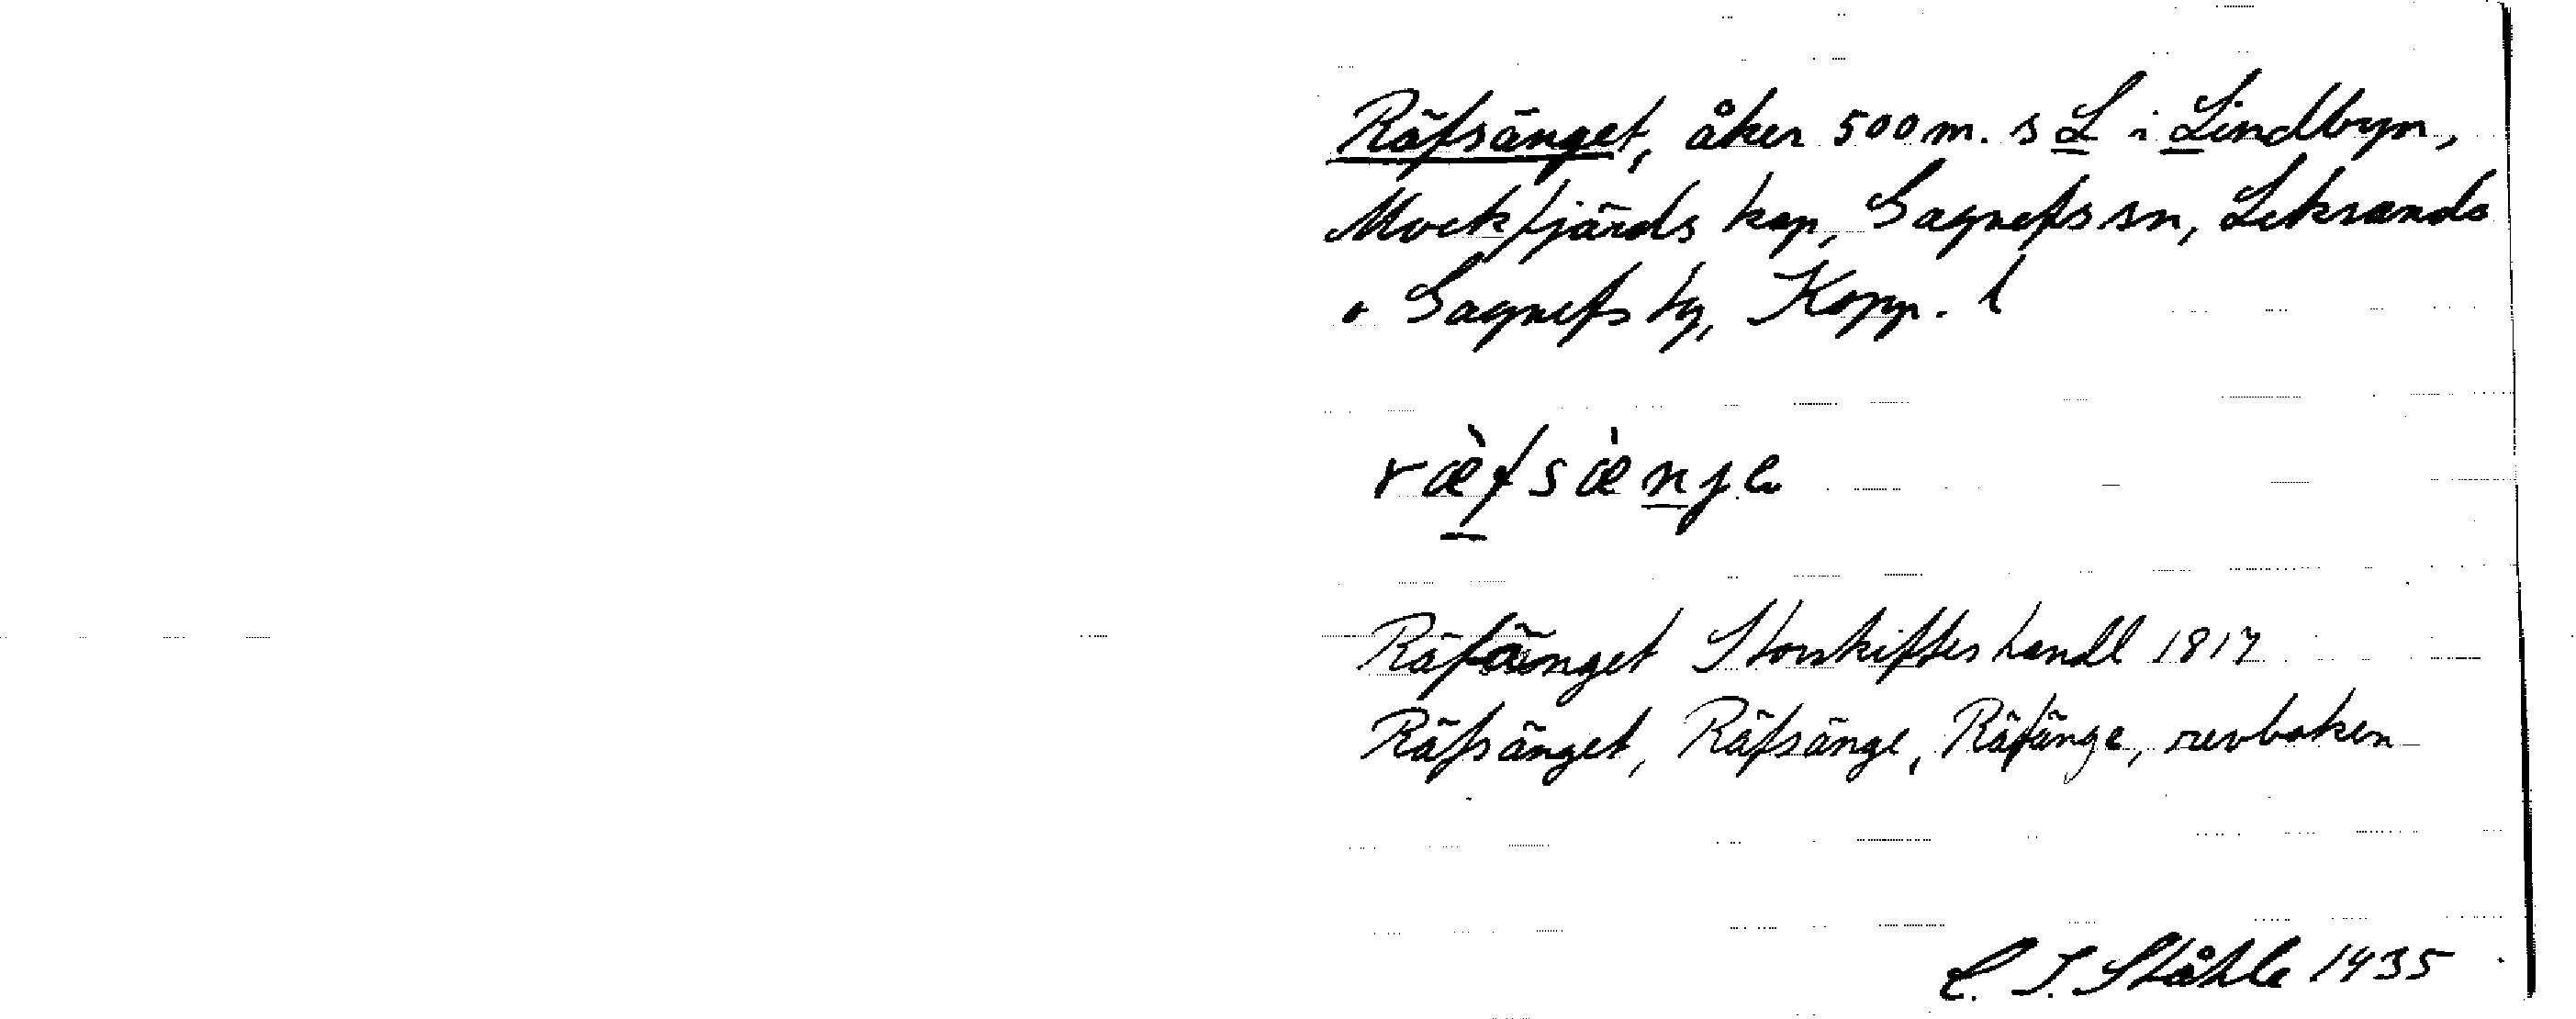 Räfsänget, åker 500 m. s L i Lindbyn,
Mockfjärds kap, Gagnefs sn, Leksands
o Gagnefs tg, Kopp. l
ræ̀fsæ̀nje
Räfänget Storskifteshandl 1817
Räfsänget, Räfsänge, Räfänge, revboken
C. I. Ståhle 1935